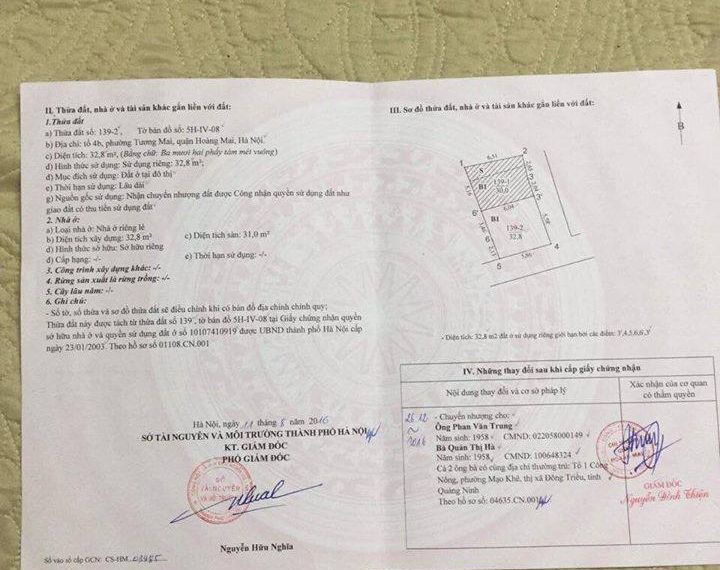 II. Thửa đất, nhà ở và tài sản khác gắn liền với đất:
1. Thửa đất
a) Thửa đất số: 139-2, Tờ bản đồ số: 5H-IV-08
b) Địa chỉ: tổ 4b, phường Tương Mai, quận Hoàng Mai, Hà Nội.
c) Diện tích: 32,8 m², (Bằng chữ: Ba mươi hai phẩy tám mét vuông)
d) Hình thức sử dụng: Sử dụng riêng: 32,8 m²;
đ) Mục đích sử dụng: Đất ở tại đô thị
e) Thời hạn sử dụng: Lâu dài
g) Nguồn gốc sử dụng: Nhận chuyển nhượng đất được Công nhận quyền sử dụng đất như
giao đất có thu tiền sử dụng đất
2. Nhà ở:
a) Loại nhà ở: Nhà ở riêng lẻ
b) Diện tích xây dựng: 32,8 m² c) Diện tích sàn: 31,0 m²
d) Hình thức sở hữu: Sở hữu riêng
đ) Cấp hạng: -/- e) Thời hạn sử dụng: -/-
3. Công trình xây dựng khác: -/-
4. Rừng sản xuất là rừng trồng: -/-
5. Cây lâu năm: -/-
6. Ghi chú:
- Số tờ, số thửa và sơ đồ thửa đất sẽ điều chỉnh khi có bản đồ địa chính chính quy;
Thửa đất này được tách từ thửa đất số 139, tờ bản đồ 5H-IV-08 tại Giấy chứng nhận quyền
sở hữu nhà ở và quyền sử dụng đất ở số 10107410919 được UBND thành phố Hà Nội cấp
ngày 23/01/2003. Theo hồ sơ số 01108.CN.001
Hà Nội, ngày 11 tháng 5 năm 2016
SỞ TÀI NGUYÊN VÀ MÔI TRƯỜNG THÀNH PHỐ HÀ NỘI
KT. GIÁM ĐỐC
PHÓ GIÁM ĐỐC
SỞ
TÀI NGUYÊN
VÀ MÔI TRƯỜNG
Nguyễn Hữu Nghĩa
Số vào sổ cấp GCN: CS-HM 03955
III. Sơ đồ thửa đất, nhà ở và tài sản khác gắn liền với đất:
B
1
6,51
2
S
B1
139-1
30,0
5,16
6'
6,04
B1
139-2
32,8
6
5
5,86
4
- Diện tích: 32,8 m2 đất ở sử dụng riêng giới hạn bởi các điểm: 3',4,5,6,6',3'
IV. Những thay đổi sau khi cấp giấy chứng nhận
Nội dung thay đổi và cơ sở pháp lý
Xác nhận của cơ quan
có thẩm quyền
26.12
2016
- Chuyển nhượng cho:
Ông Phan Văn Trung
Năm sinh: 1958 CMND: 022058000149
Bà Quản Thị Hà
Năm sinh: 1958, CMND: 100648324
Cả 2 ông bà có cùng địa chỉ thường trú: Tổ 1 Công
Nông, phường Mạo Khê, thị xã Đông Triều, tỉnh
Quảng Ninh
Theo hồ sơ số: 04635.CN.001
GIÁM ĐỐC
Nguyễn Đình Thiện